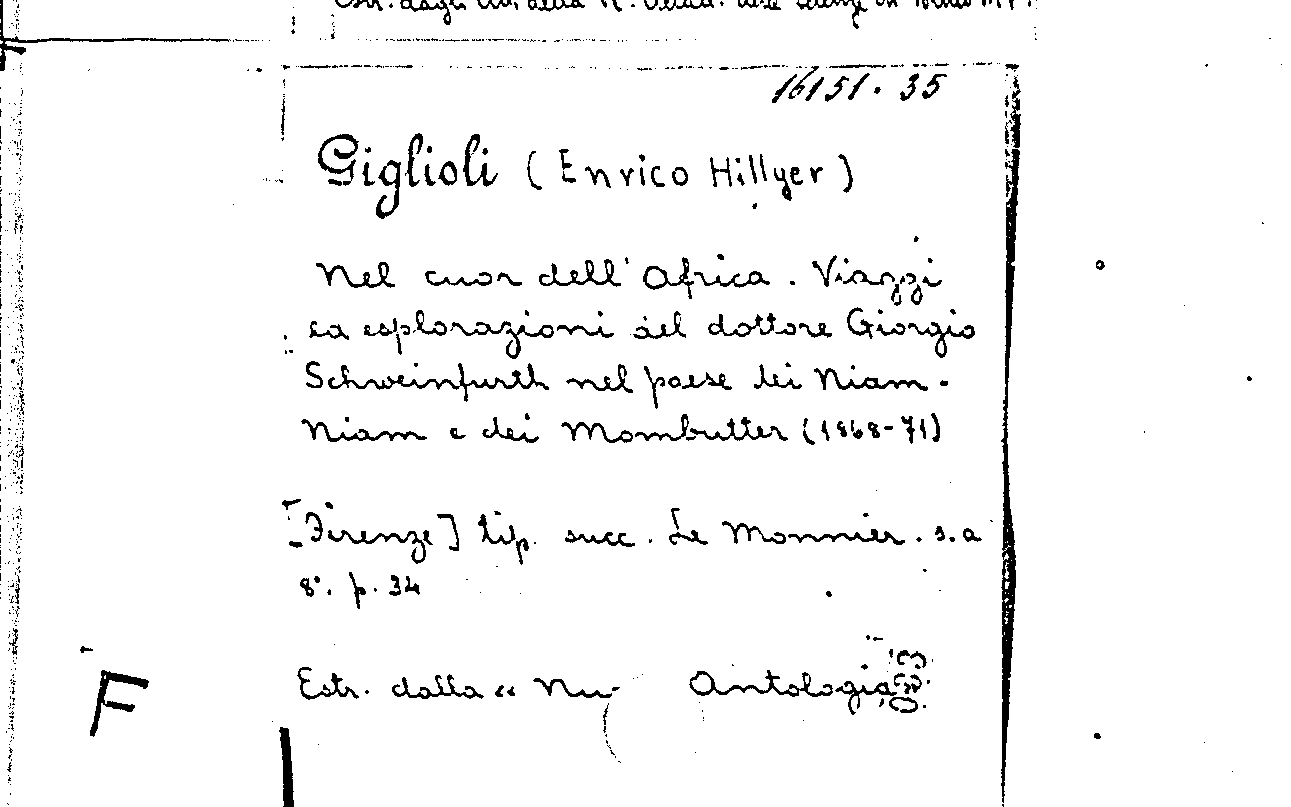 16151.35
Giglioli (Enrico Hillyer)
Nel cuor dell'Africa. Viaggi
ed esplorazioni del dottore Giorgio
Schweinfurth nel paese dei Niam-
Niam e dei Mombutter (1868-71)
[Firenze] tip. succ. Le Monnier. s.a
8°. p. 34
Estr. dalla « Nu Antologia
F